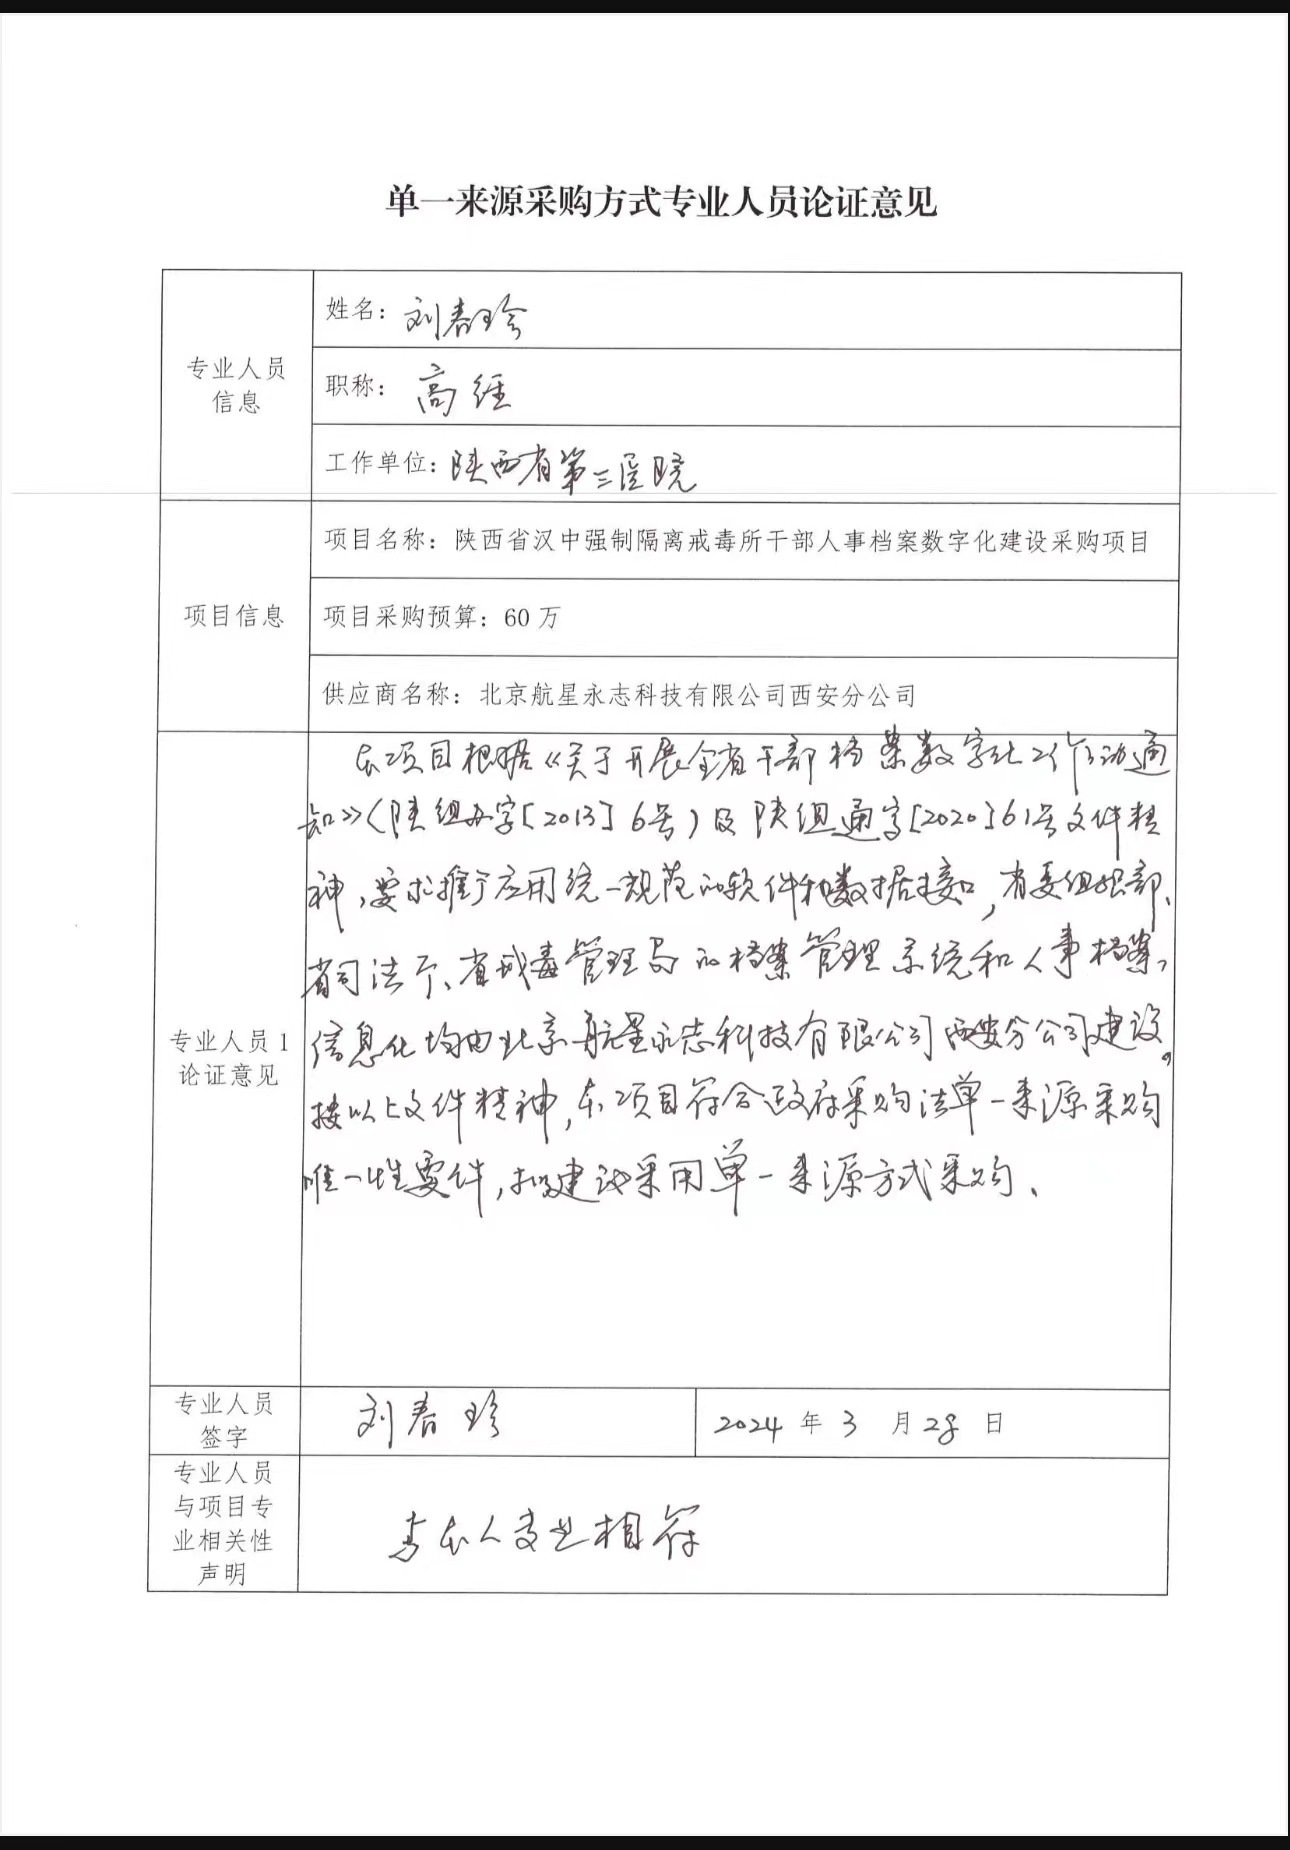 单一来源采购方式专业人员论证意见
专业人员
信息
姓名：刘春玲
职称：高经
工作单位：陕西省第三医院
项目信息
项目名称：陕西省汉中强制隔离戒毒所干部人事档案数字化建设采购项目
项目采购预算：60 万
供应商名称：北京航星永志科技有限公司西安分公司
专业人员 1
论证意见
本项目根据《关于开展全省干部档案数字化工作的通
知》（陕组办字[2013]6号）及陕组通字[2020]61号文件精
神，要求推广应用统一规范的软件和数据接口，省委组织部、
省司法厅、省戒毒管理局的档案管理系统和人事档案
信息化均由北京航星永志科技有限公司西安分公司建设。
按以上文件精神，本项目符合政府采购法单一来源采购
唯一性要件，拟建议采用单一来源方式采购、
专业人员
签字
刘春玲
2024 年 3 月 28 日
专业人员
与项目专
业相关性
声明
与本人专业相符